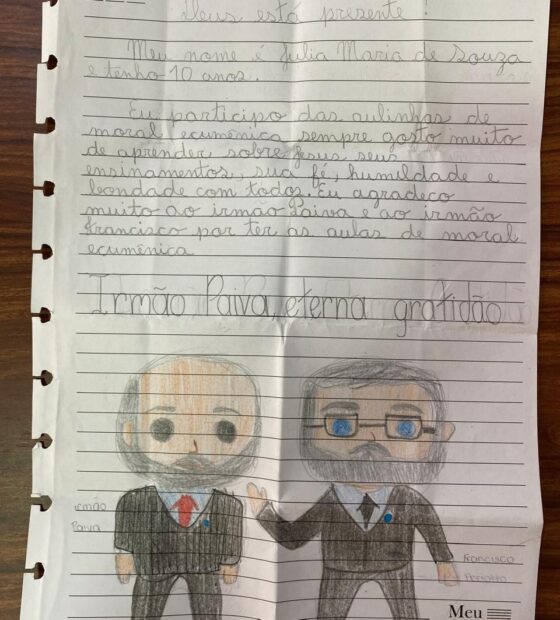 Deus está presente!
Meu nome é Julia Maria de Souza
e tenho 10 anos.
Eu participo das aulinhas de
moral ecumênica sempre gosto muito
de aprender sobre Jesus seus
ensinamentos, sua fé, humildade e
bondade com todos. Eu agradeço
muito ao irmão Paiva e ao irmão
Francisco por ter as aulas de moral
ecumênica
Irmão Paiva, eterna gratidão
irmão
Paiva
Francisco
Periotto
Meu